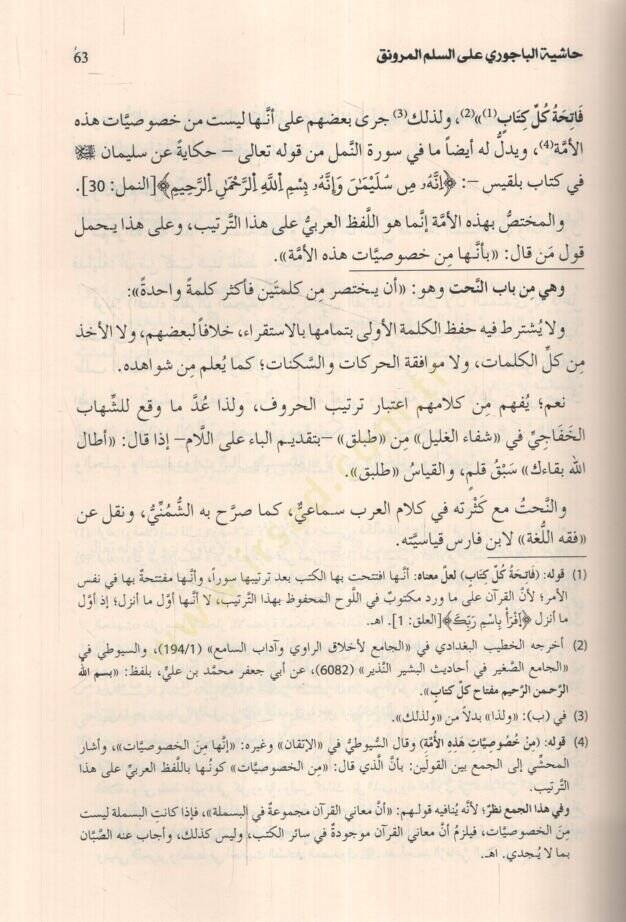 حاشية الباجوري على السلم المرونق
63
فَاتِحَةُ كُلِّ كِتَابٍ(1)»(2)، ولذلك(3) جرى بعضهم على أنَّها ليست من خصوصيَّات هذه
الأمَّة(4)، ويدلُّ له أيضاً ما في سورة النَّمل من قوله تعالى – حكايةً عن سليمان ﷺ
في كتاب بلقيس –: ﴿إِنَّهُۥ مِن سُلَيْمَٰنَ وَإِنَّهُۥ بِسْمِ اللَّهِ الرَّحْمَٰنِ الرَّحِيمِ﴾[النمل: 30].
والمختصُّ بهذه الأمَّة إنَّما هو اللَّفظ العربيُّ على هذا التَّرتيب، وعلى هذا يحمل
قول مَن قال: «بأنَّها مِن خصوصيَّات هذه الأمَّة».
وهي مِن باب النَّحت وهو: «أن يختصر مِن كلمتَين فأكثر كلمةً واحدةً»:
ولا يُشترط فيه حفظ الكلمة الأولى بتمامها بالاستقراء، خلافاً لبعضهم، ولا الأخذ
مِن كلِّ الكلمات، ولا موافقة الحركات والسَّكنات؛ كما يُعلم مِن شواهده.
نعم؛ يُفهم مِن كلامهم اعتبار ترتيب الحروف، ولذا عُدَّ ما وقع للشِّهاب
الخَفَاجِيِّ في «شفاء الغليل» مِن «طبلق» –بتقديم الباء على اللَّام– إذا قال: «أطال
الله بقاءك» سَبْقُ قلمٍ، والقياسُ «طلبق».
والنَّحتُ مع كَثْرته في كلام العرب سماعيٌّ، كما صرَّح به الشُّمُنِّيُّ، ونقل عن
«فقه اللُّغة» لابن فارس قياسيَّته.
(1) قوله: (فَاتِحَةُ كُلِّ كِتَابٍ) لعلَّ معناه: أنَّها افتتحت بها الكتب بعد ترتيبها سوراً، وأنَّها مفتتحة بها في نفس
الأمر؛ لأنَّ القرآن على ما ورد مكتوبٌ في اللَّوح المحفوظ بهذا التَّرتيب، لا أنَّها أوَّل ما أنزل؛ إذ أوَّل
ما أنزل ﴿اقْرَأْ بِاسْمِ رَبِّكَ﴾[العلق: 1]. اهـ.
(2) أخرجه الخطيب البغدادي في «الجامع لأخلاق الراوي وآداب السامع» (194/1)، والسيوطي في
«الجامع الصَّغير في أحاديث البشير النَّذير» (6082)، عن أبي جعفر محمَّد بن عليٍّ، بلفظ: «بسم الله
الرَّحمن الرَّحيم مفتاح كلِّ كتابٍ».
(3) في (ب): «ولذا» بدلاً من «ولذلك».
(4) قوله: (مِنْ خُصُوصِيَّاتِ هَذِهِ الأُمَّةِ) وقال السُّيوطيُّ في «الإتقان» وغيره: «إنَّها مِنَ الخصوصيَّات»، وأشار
المحشِّي إلى الجمع بين القولَين: بأنَّ الَّذي قال: «مِن الخصوصيَّات» كونُها باللَّفظ العربيِّ على هذا
التَّرتيب.
وفي هذا الجمع نظرٌ؛ لأنَّه يُنافيه قولهم: «أنَّ معاني القرآن مجموعةٌ في البسملة»، فإذا كانت البسملة ليست
مِنَ الخصوصيَّات، فيلزمُ أنَّ معاني القرآن موجودةٌ في سائر الكتب، وليس كذلك، وأجاب عنه الصَّبَّان
بما لا يُجدي. اهـ.